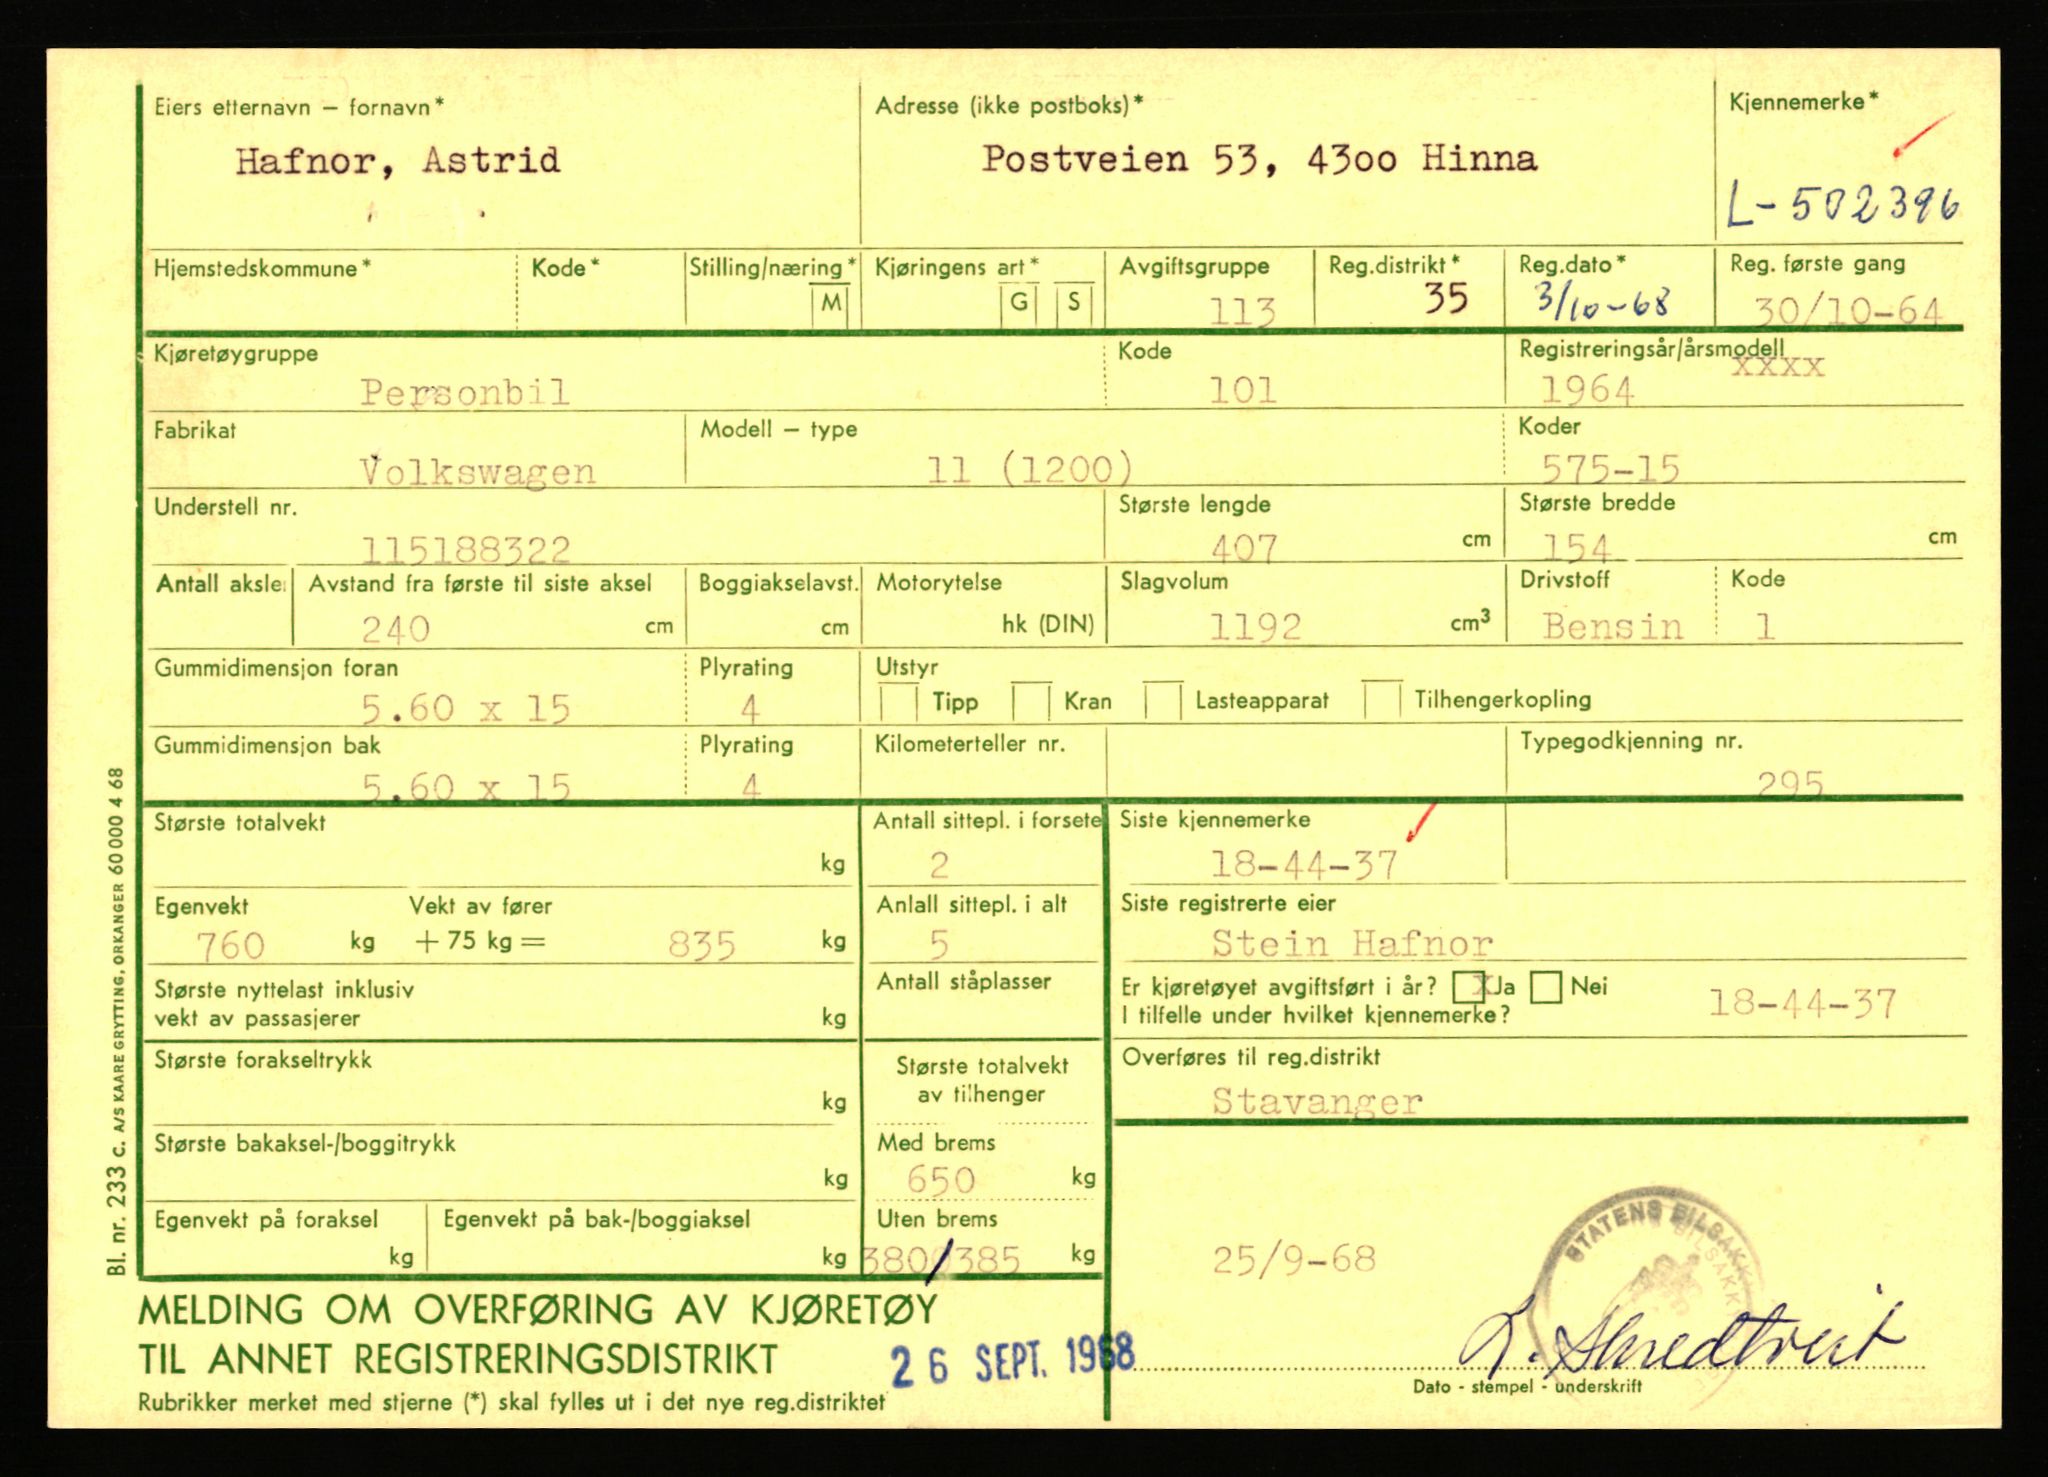 Eiers etternavn – fornavn*
Hafnor, Astrid
Adresse (ikke postboks)*
Postveien 53, 43oo Hinna
Kjennemerke*
L-502396
Hjemstedskommune*
Kode*
Stilling/næring*
M
Kjøringens art*
G S
Avgiftsgruppe
113
Reg.distrikt*
35
Reg.dato*
3/10-68
Reg. første gang
30/10-64
Kjøretøygruppe
Personbil
Kode
101
Registreringsår/årsmodell
xxxx
1964
Fabrikat
Volkswagen
Modell – type
11 (1200)
Koder
575-15
Understell nr.
115188322
Største lengde
407 cm
Største bredde
154 cm
Antall aksle
Avstand fra første til siste aksel
240 cm
Boggiakselavst.
cm
Motorytelse
hk (DIN)
Slagvolum
1192 cm3
Drivstoff
Bensin
Kode
1
Gummidimensjon foran
5.60 x 15
Plyrating
4
Utstyr
Tipp Kran Lasteapparat Tilhengerkopling
Gummidimensjon bak
5.60 x 15
Plyrating
4
Kilometerteller nr.
Typegodkjenning nr.
295
Største totalvekt
kg
Antall sittepl. i forsete
2
Siste kjennemerke
18-44-37
Egenvekt
760 kg
Vekt av fører
+ 75 kg = 835 kg
Anlall sittepl. i alt
5
Siste registrerte eier
Stein Hafnor
Største nyttelast inklusiv
vekt av passasjerer kg
Antall ståplasser
Er kjøretøyet avgiftsført i år? x Ja Nei
I tilfelle under hvilket kjennemerke?
18-44-37
Største forakseltrykk
kg
Største totalvekt
av tilhenger
Overføres til reg.distrikt
Stavanger
Største bakaksel-/boggitrykk
kg
Med brems
650 kg
Egenvekt på foraksel
kg
Egenvekt på bak-/boggiaksel
kg
Uten brems
380/385 kg
25/9-68
STATENS BILSAKK
MELDING OM OVERFØRING AV KJØRETØY
TIL ANNET REGISTRERINGSDISTRIKT
26 SEPT. 1968
Rubrikker merket med stjerne (*) skal fylles ut i det nye reg.distriktet
Dato - stempel - underskrift
Bl. nr. 233 c. A/S KAARE GRYTTING, ORKANGER 60 000 4 68